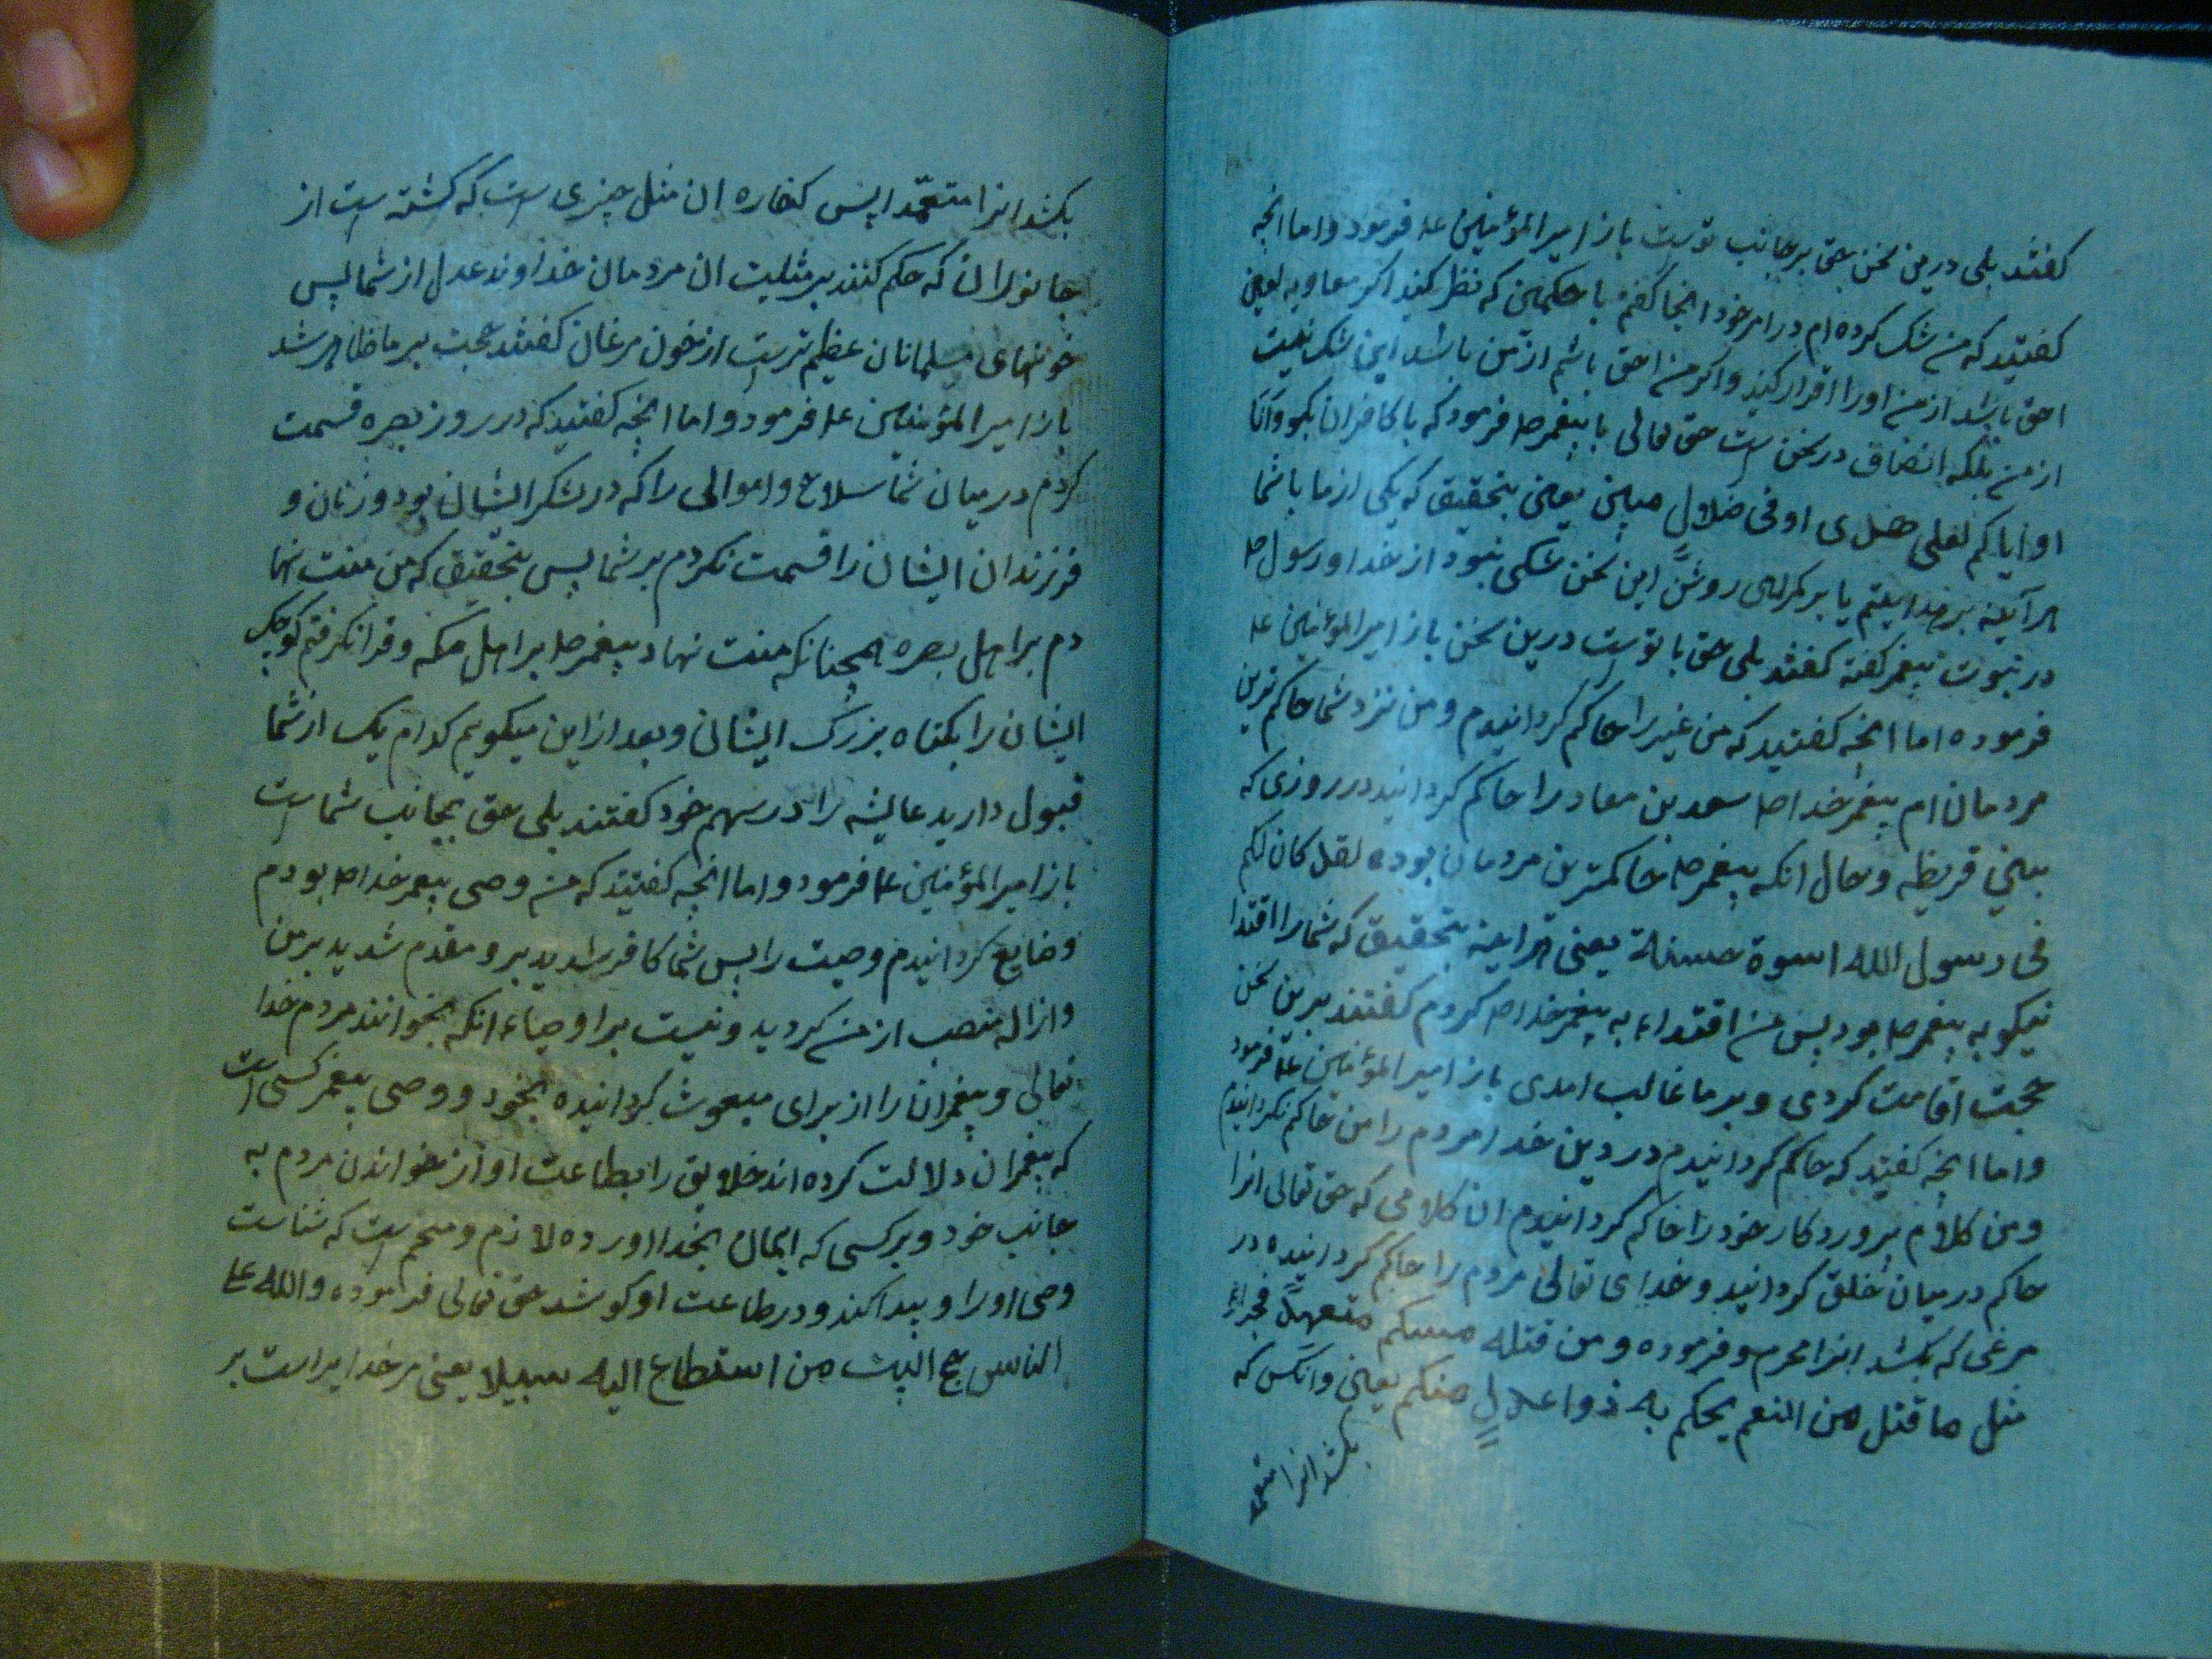 کفتند بلی درین سخن حق بر جانب تو ست باز امیر المؤمنین ع فرمود و اما انچه
کفتید که من شک کرده ام در امر خود انجا کفتم با حکمین که نظر کنید اکر معاویه لعین
احق باشد از من او را اقرار کنید و اکر من احق باشم از من باشد این شک نیست
از من بلکه انصاف در سخن ست حق تعالی با پیغمر ص فرمود که با کافران بکو و انا
او ایاکم لعلی هدی او فی ضلال مبین یعنی بتحقیق که یکی از ما با شما
هر آینه بر هدایتیم یا بر کمراهی روشن این سخن شکی نبود از خدا و رسول ص
در نبوت پیغمر کفته کفتند بلی حق با تو ست درین سخن باز امیر المؤمنین ع
فرموده اما انچه کفتید که من غیر را حاکم کردانیدم و من نزد شما حاکم ترین
مردمان ام پیغمر خدا ص سعد بن معاد را حاکم کردانید در روزی که
بینی قریظه و حال انکه پیغمر ص حاکمترین مردمان بوده لقد کان لکم
فی رسول الله اسوة حسنة یعنی هراینه بتحقیق که شما را اقتدا
نیکو به پیغمر ص بود پس من اقتداء به پیغمر خدا ص کردم کفتند برین سخن
حجت اقامت کردی و بر ما غالب امدی باز امیر المؤمنین ع فرمود
و اما انچه کفتید که حاکم کردانیدم در دین خدا مردم را من حاکم نکردانیدم
و من کلام پروردکار خود را حاکم کردانیدم ان کلامی که حق تعالی انرا
حاکم در میان خلق کردانید و خدای تعالی مردم را حاکم کردانیده در
مرغی که بکشد انرا محرم و فرموده و من قتله منکم متعمدا فجزاء
مثل ما قتل من النعم یحکم به ذوا عدل منکم یعنی و انکس که
بکشد انرا متعمد
بکشد انرا متعمدا پس کفاره ان مثل چیزی ست که کشته ست از
جانوران که حکم کنند بر مثلیت ان مردمان خداوند عدل از شما پس
خونهای مسلمانان عظیم تر ست از خون مرغان کفتند حجت بر ما ظاهر شد
باز امیر المؤمنین ع فرمود و اما انچه کفتید که در روز بصره قسمت
کردم در میان شما سلاح و اموالی را که در لشکر ایشان بود و زنان و
فرزندان ایشان را قسمت نکردم بر شما پس بتحقیق که من منت نها
دم بر اهل بصره همچنانکه منت نهاد پیغمر ص بر اهل مکه و فرا نکرفتم کوچک
ایشان را بکناه بزرک ایشان و بعد از این میکویم کدام یک از شما
قبول دارید عایشه را در سهم خود کفتند بلی حق بجانب شما ست
باز امیر المؤمنین ع فرمود و اما انچه کفتید که من وصی پیغمر خدا ص بودم
و ضایع کردانیدم وصیت را پس شما کافر شدید برو مقدم شدید بر من
و ازاله منصب از من کردید و نیست بر اوصیاء انکه بخوانند مردم خدا
تعالی و پیغمران را از برای مبعوث کردانیده بخود و وصی پیغمر کسی است
که پیغمران دلالت کرده اند خلایق را بطاعت او از خواندن مردم به
جانب خود و بر کسی که ایمان بخدا اورده لازم و متحم ست که شناست
وصی او را و پیدا کند و در طاعت او کوشد حق تعالی فرموده و الله علی
الناس حج البیت من استطاع الیه سبیلا یعنی مر خدا یراست بر